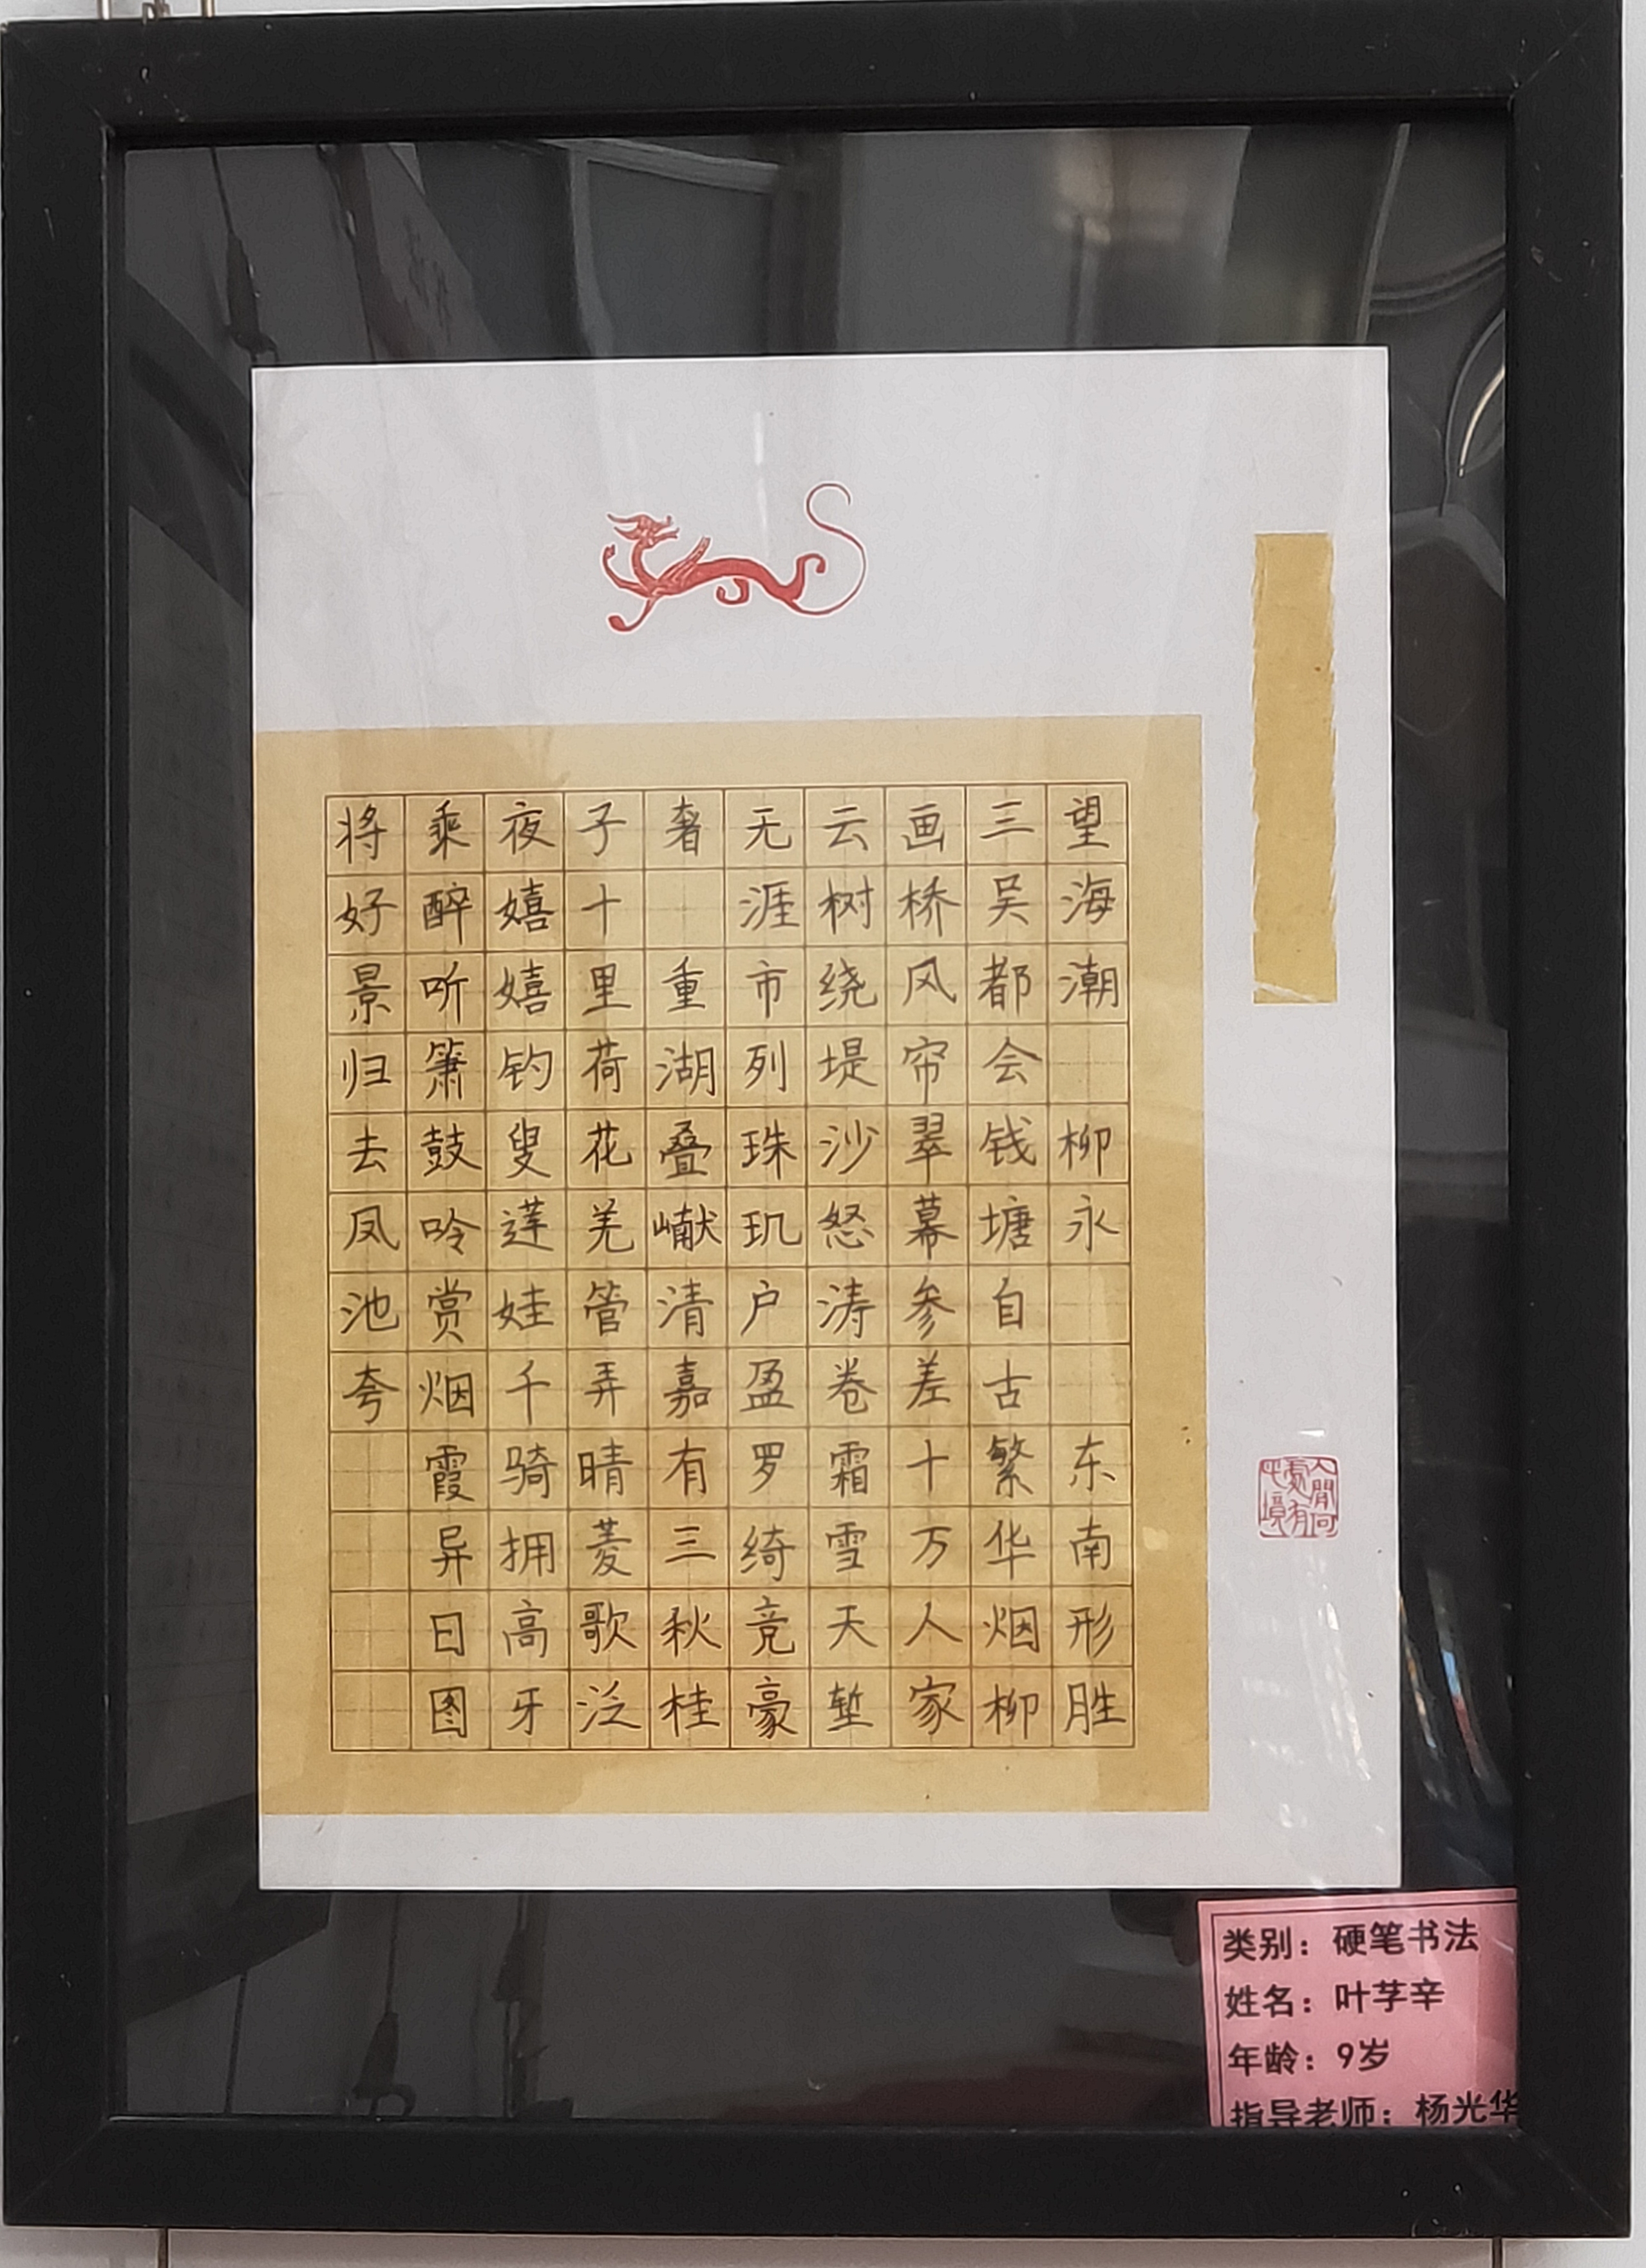 望海潮 柳永 东南形胜
三吴都会钱塘自古繁华烟柳
画桥风帘翠幕参差十万人家
云树绕堤沙怒涛卷霜雪天堑
无涯市列珠玑户盈罗绮竞豪
奢 重湖叠𪩘清嘉有三秋桂
子十里荷花羌管弄晴菱歌泛
夜嬉嬉钓叟莲娃千骑拥高牙
乘醉听箫鼓吟赏烟霞异日图
将好景归去凤池夸
人間何
處有
此境
类别：硬笔书法
姓名：叶芓辛
年龄：9岁
指导老师：杨光华